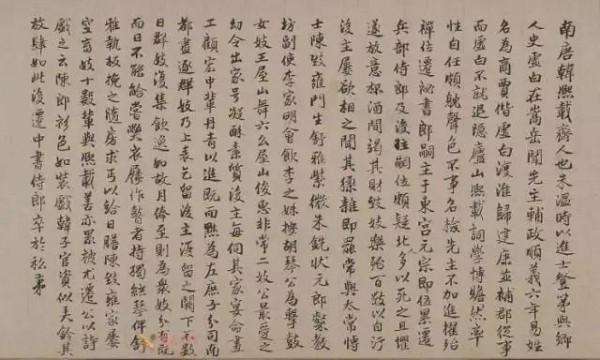 南唐韓熙載齊人也朱溫時以進士登第與鄉
人史虛白在嵩岳聞先主輔政順義六年易姓
名為商賈偕虛白渡淮歸建康並補郡從事
而虛白不就退隱廬山熙載詞學博贍然率
性自任頗躭聲色不事名檢先主不加進擢殆
禪位遷祕書郎嗣主于東宮元宗即位累遷
兵部侍郎及後主嗣位頗疑北人多以死之且懼
遂放意杯酒間竭其財致妓樂殆百數以自汙
後主屢欲相之聞其猱雜即罷常與太常博
士陳致雍門生舒雅紫微朱銑狀元郎粲教
坊副使李家明會飲李之妹按胡琴公為擊鼓
女妓王屋山舞六么屋山俊惠非常二妓公最愛之
幼令出家號凝酥素質後主每伺其家宴命畫
工顧宏中輩丹青以進既而黜為左庶子分司南
都盡逐群妓乃上表乞留後主復留之闕下不數
日群妓復集飲逸如故月俸至則為衆妓分有既
而日不能給嘗弊衣屨作瞽者持獨絃琴俾舒
雅執板挽之隨房求丐以給日膳陳致雍家屢
空蓄妓十數輩與熙載善亦累被尤遷公以詩
戲之云陳郎衫色如裝戲韓子官資似美鈴其
放肆如此後遷中書侍郎卒於私第